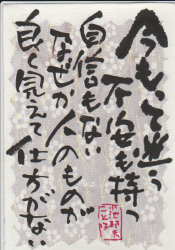 今もって迷う
不安も持つ
自信もない
なぜか人のものが
良く見えて仕方がない